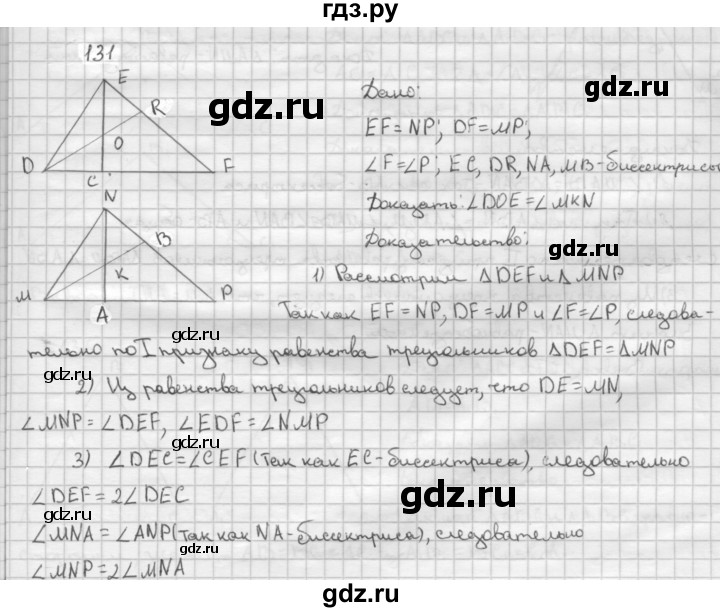 гдз.ру
131
E
R
O
D
C
F
N
B
K
M
A
P
gdz.ru
gdz.ru
Дано:
EF=NP; DF=MP;
∠F=∠P; EC, DR, NA, MB-биссектрисы
Доказать: ∠DOE=∠MKN
Доказательство:
gdz.ru
1) Рассмотрим △DEF и △MNP
gdz.ru
Так как EF=NP, DF=MP и ∠F=∠P, следова-
тельно по I признаку равенства треугольников △DEF=△MNP
gdz.ru
gdz.ru
2) Из равенства треугольников следует, что DE=MN,
∠MNP=∠DEF, ∠EDF=∠NMP
gdz.ru
3) ∠DEC=∠CEF (так как EC-биссектриса), следовательно
∠DEF=2∠DEC
gdz.ru
∠MNA=∠ANP (так как NA-биссектриса), следовательно
gdz.ru
∠MNP=2∠MNA
gdz.ru